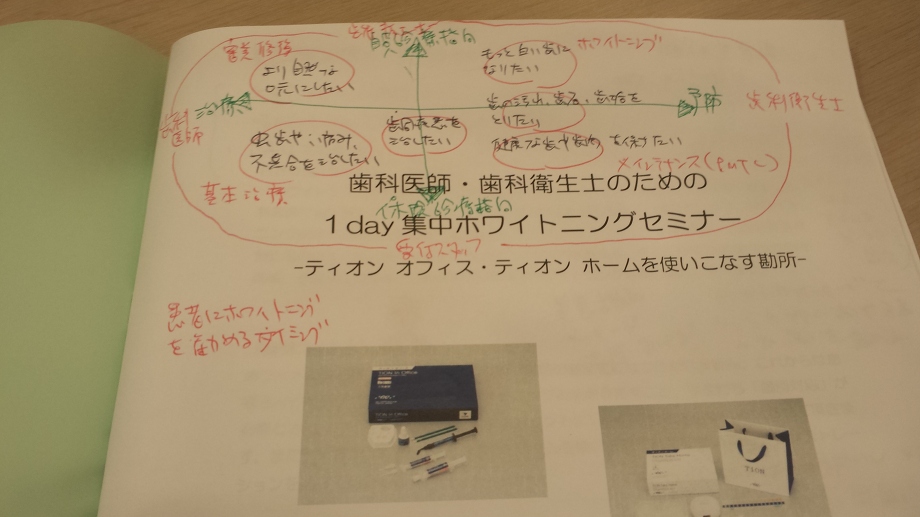 審美修復
診療指向
より自然な
口元にしたい
もっと白い歯に
なりたい
ホワイトニング
治療
予防
歯科
医師
歯科衛生士
歯の汚れ、歯石、
をとりたい
歯周疾患を
治したい
虫歯や、痛み、
不具合を治したい
健康な歯や
を続けたい
メインテナンス(PMTC)
基本治療
歯科医師・歯科衛生士のための
保険診療指向
1day 集中ホワイトニングセミナー
受付スタッフ
-ティオン オフィス・ティオン ホームを使いこなす勘所-
患者にホワイトニング
を勧めるタイミング
TiON